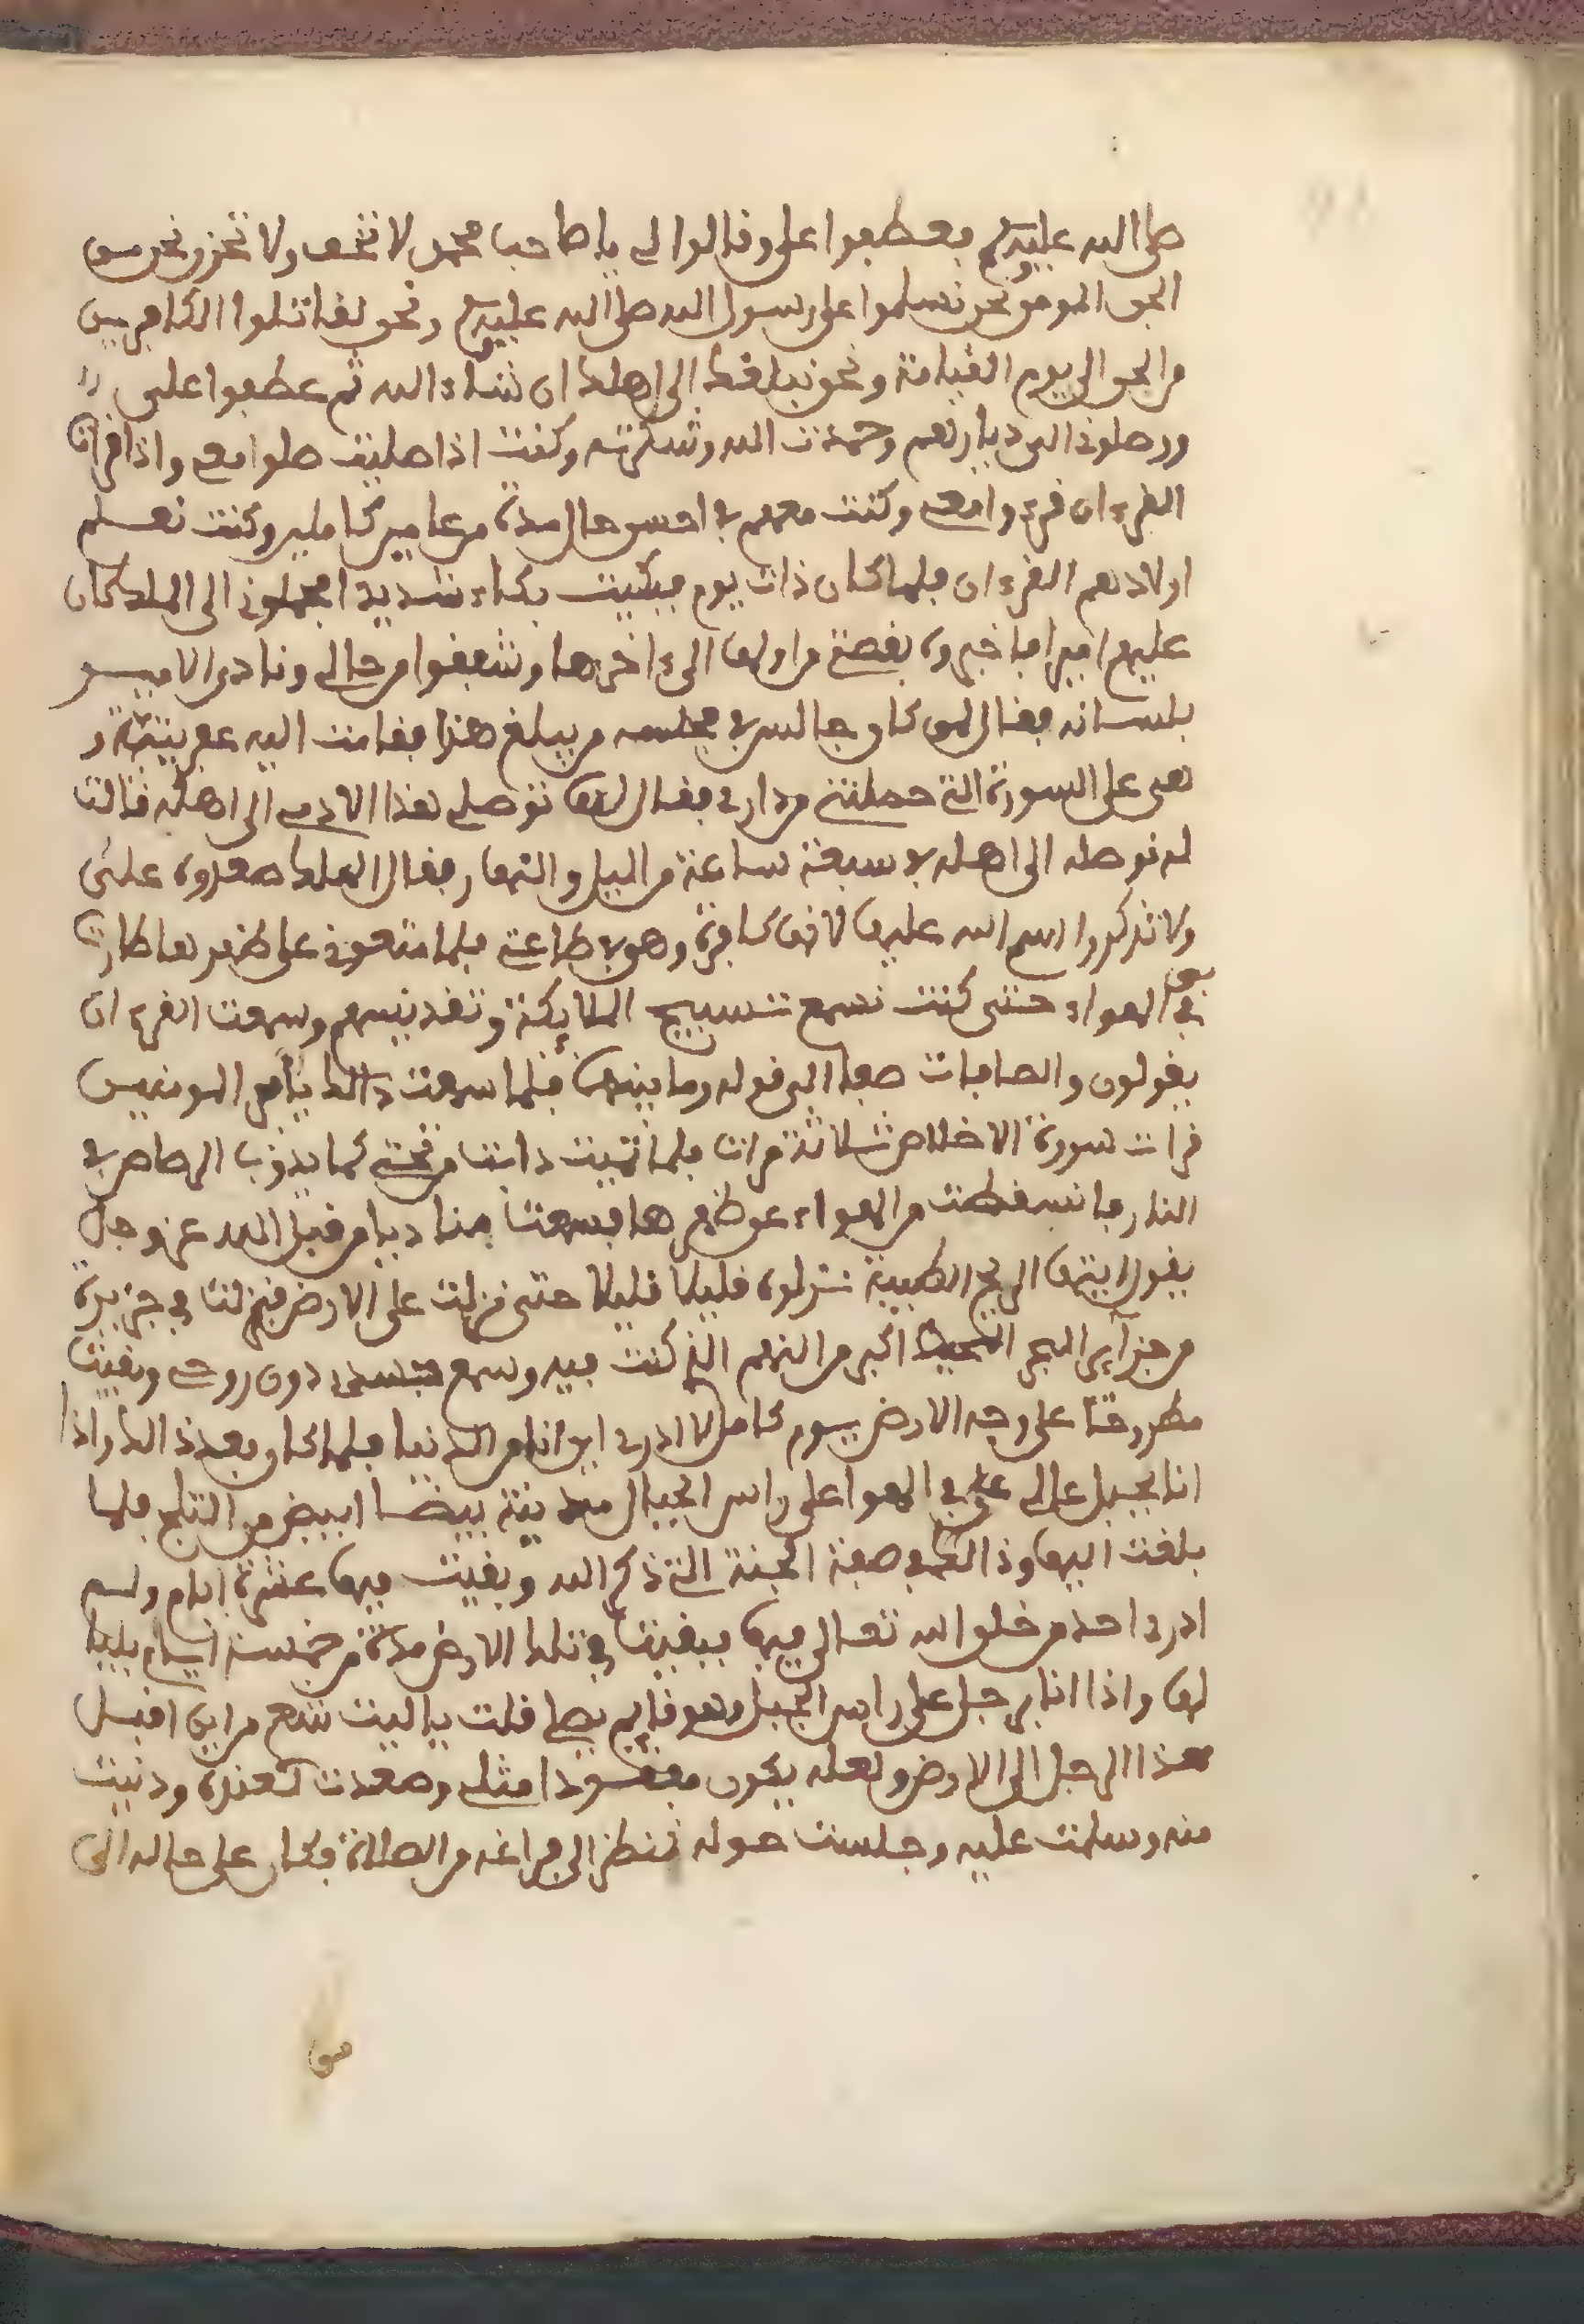 صلى الله عليه وسلم فعطفوا علي وقالوا لي يا صاحب محمد لا تخف ولا تحزن نحن من
الجن المومن نحن نسلموا على رسول الله صلى الله عليه وسلم ونحن نقاتلوا الكافرين
من الجن الى يوم القيامة ونحن نبلغك الى اهلك ان شاء الله ثم عطفوا على
ورحلوني الى ديارهم وحمدت الله وشكرته وكنت اذا صليت صلوا معي واذا قرات
القرءان قرءوا معي وكنت معهم في احسن حال مدة من عامين كاملين وكنت نعلم
اولادهم القرءان فلما كان ذات يوم فبكيت بكاء شديدا فحملوني الى الملك كان
عليهم اميرا فاخبروه بقصتي من اولها الى ءاخرها وشفقوا من حالي ونادى الامير
بلسانه فقال لمن كان جالس في مجلسه من يبلغ هذا فقامت اليه عفريتة و
هي على السورة التي حملتني من داري فقال لها توصلي هذا الادمي الى اهله قالت
له نوصله الى اهله في سبعة ساعة من اليل والنهار فقال الملك صعدوه على
ولا تذكروا اسم الله عليها لانها كافرة وهي في طاعتي فلما رفعوني على ظهرها طارت
بي في الهواء حتى كنت نسمع تسبيح الملايكة وتقديسهم وسمعت القرءان
يقولون والصافات صفا الى قوله وما بينهما فلما سمعت ذالك يا امير المومنين
قرات سورة الاخلاص ثلاثة مرات فلما تميت ذابت من تحتي كما يذوب الرصاص في
النار فانسقطت من الهواء عن ظهرها فسمعت مناديا من قبل الله عز وجل
يقول ايتها الريح الطيبة نزلوه قليلا قليلا حتى نزلت على الارض فنزلت في جزيرة
من جزاير البحر المحيط اكبر من النهر الذي كنت فيه وسمع جسدي دون روحي وبقيت
مطروحا على وجه الارض يوم كامل لا ادري اين انا من الدنيا فلما كان بعد ذالك واذا
انا بجبل عالي على في الهوا على راس الجبال مدينة بيضا ابيض من الثلج فلما
بلغت اليها وذالك في صفة الجنة التي ذكر الله وبقيت فيها عشرة ايام ولم
ادري احد من خلق الله تعالى فيها فبقيت في تلك الارض مدة من خمسة ايام بليا
لها واذا انا برجل على راس الجبل وهو قايم يصلي قلت ياليت شعري من اين اقبل
هذا الرجل الى الارض ولعله يكون مفقودا مثلي وصعدت لعنده ودنيت
منه وسلمت عليه وجلست حوله ننظر الى فراغه من الصلاة فكان على حاله الى
من